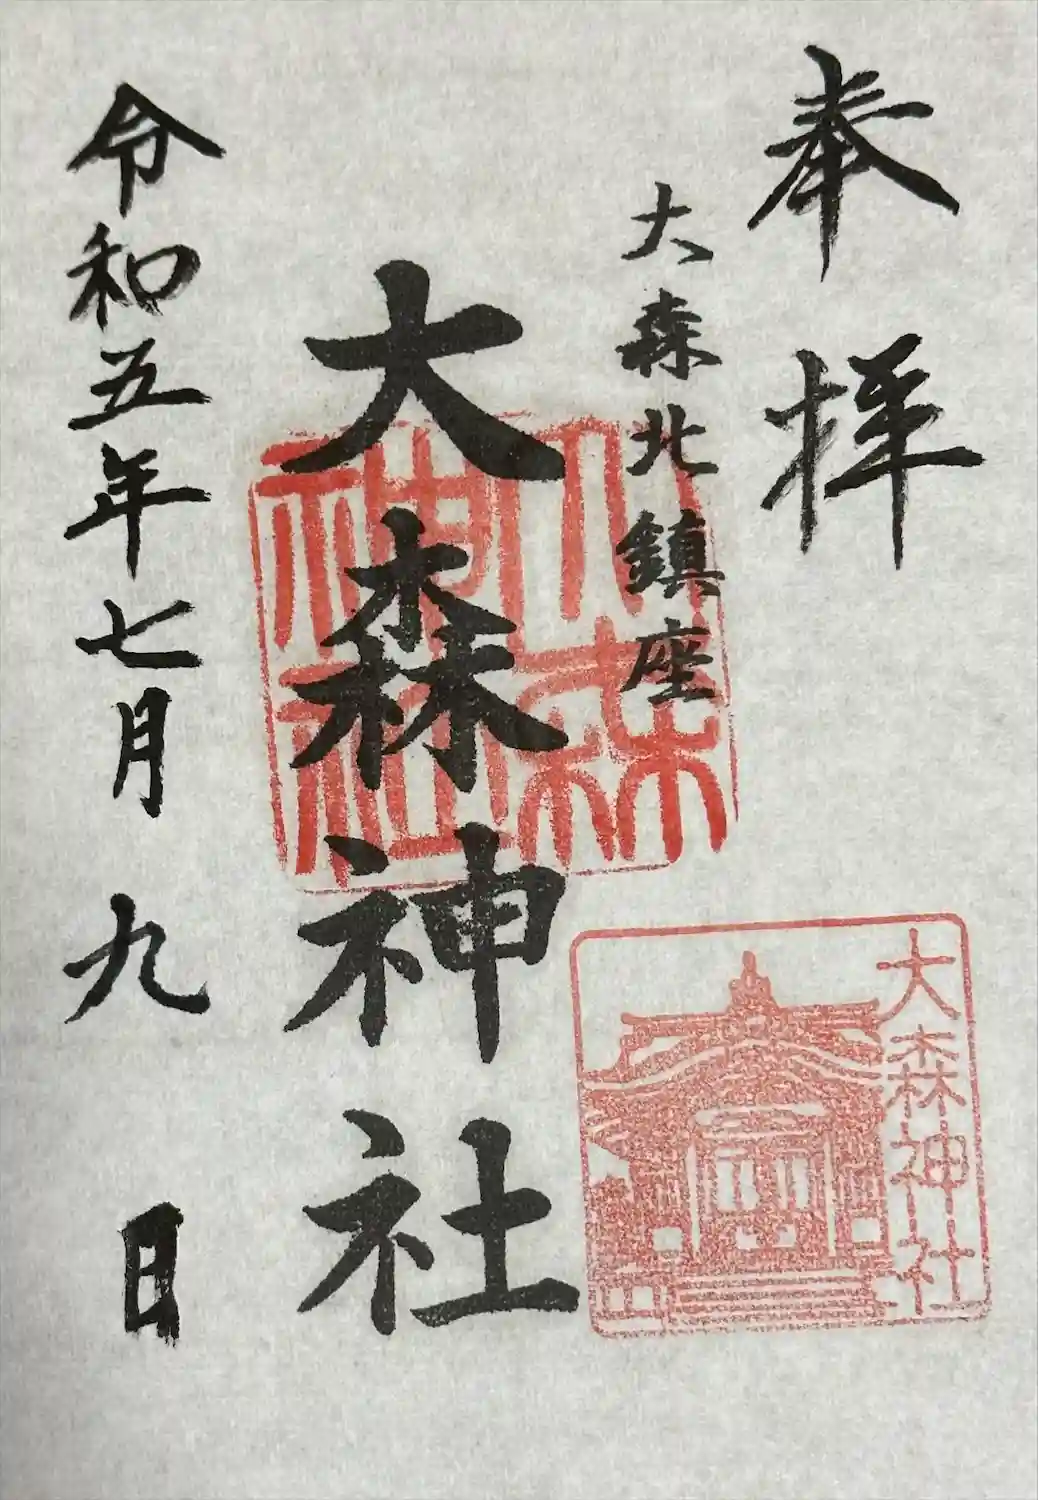 奉拝
大森北鎮座
大森神社
令和五年七月九日
大森神社
大森神社